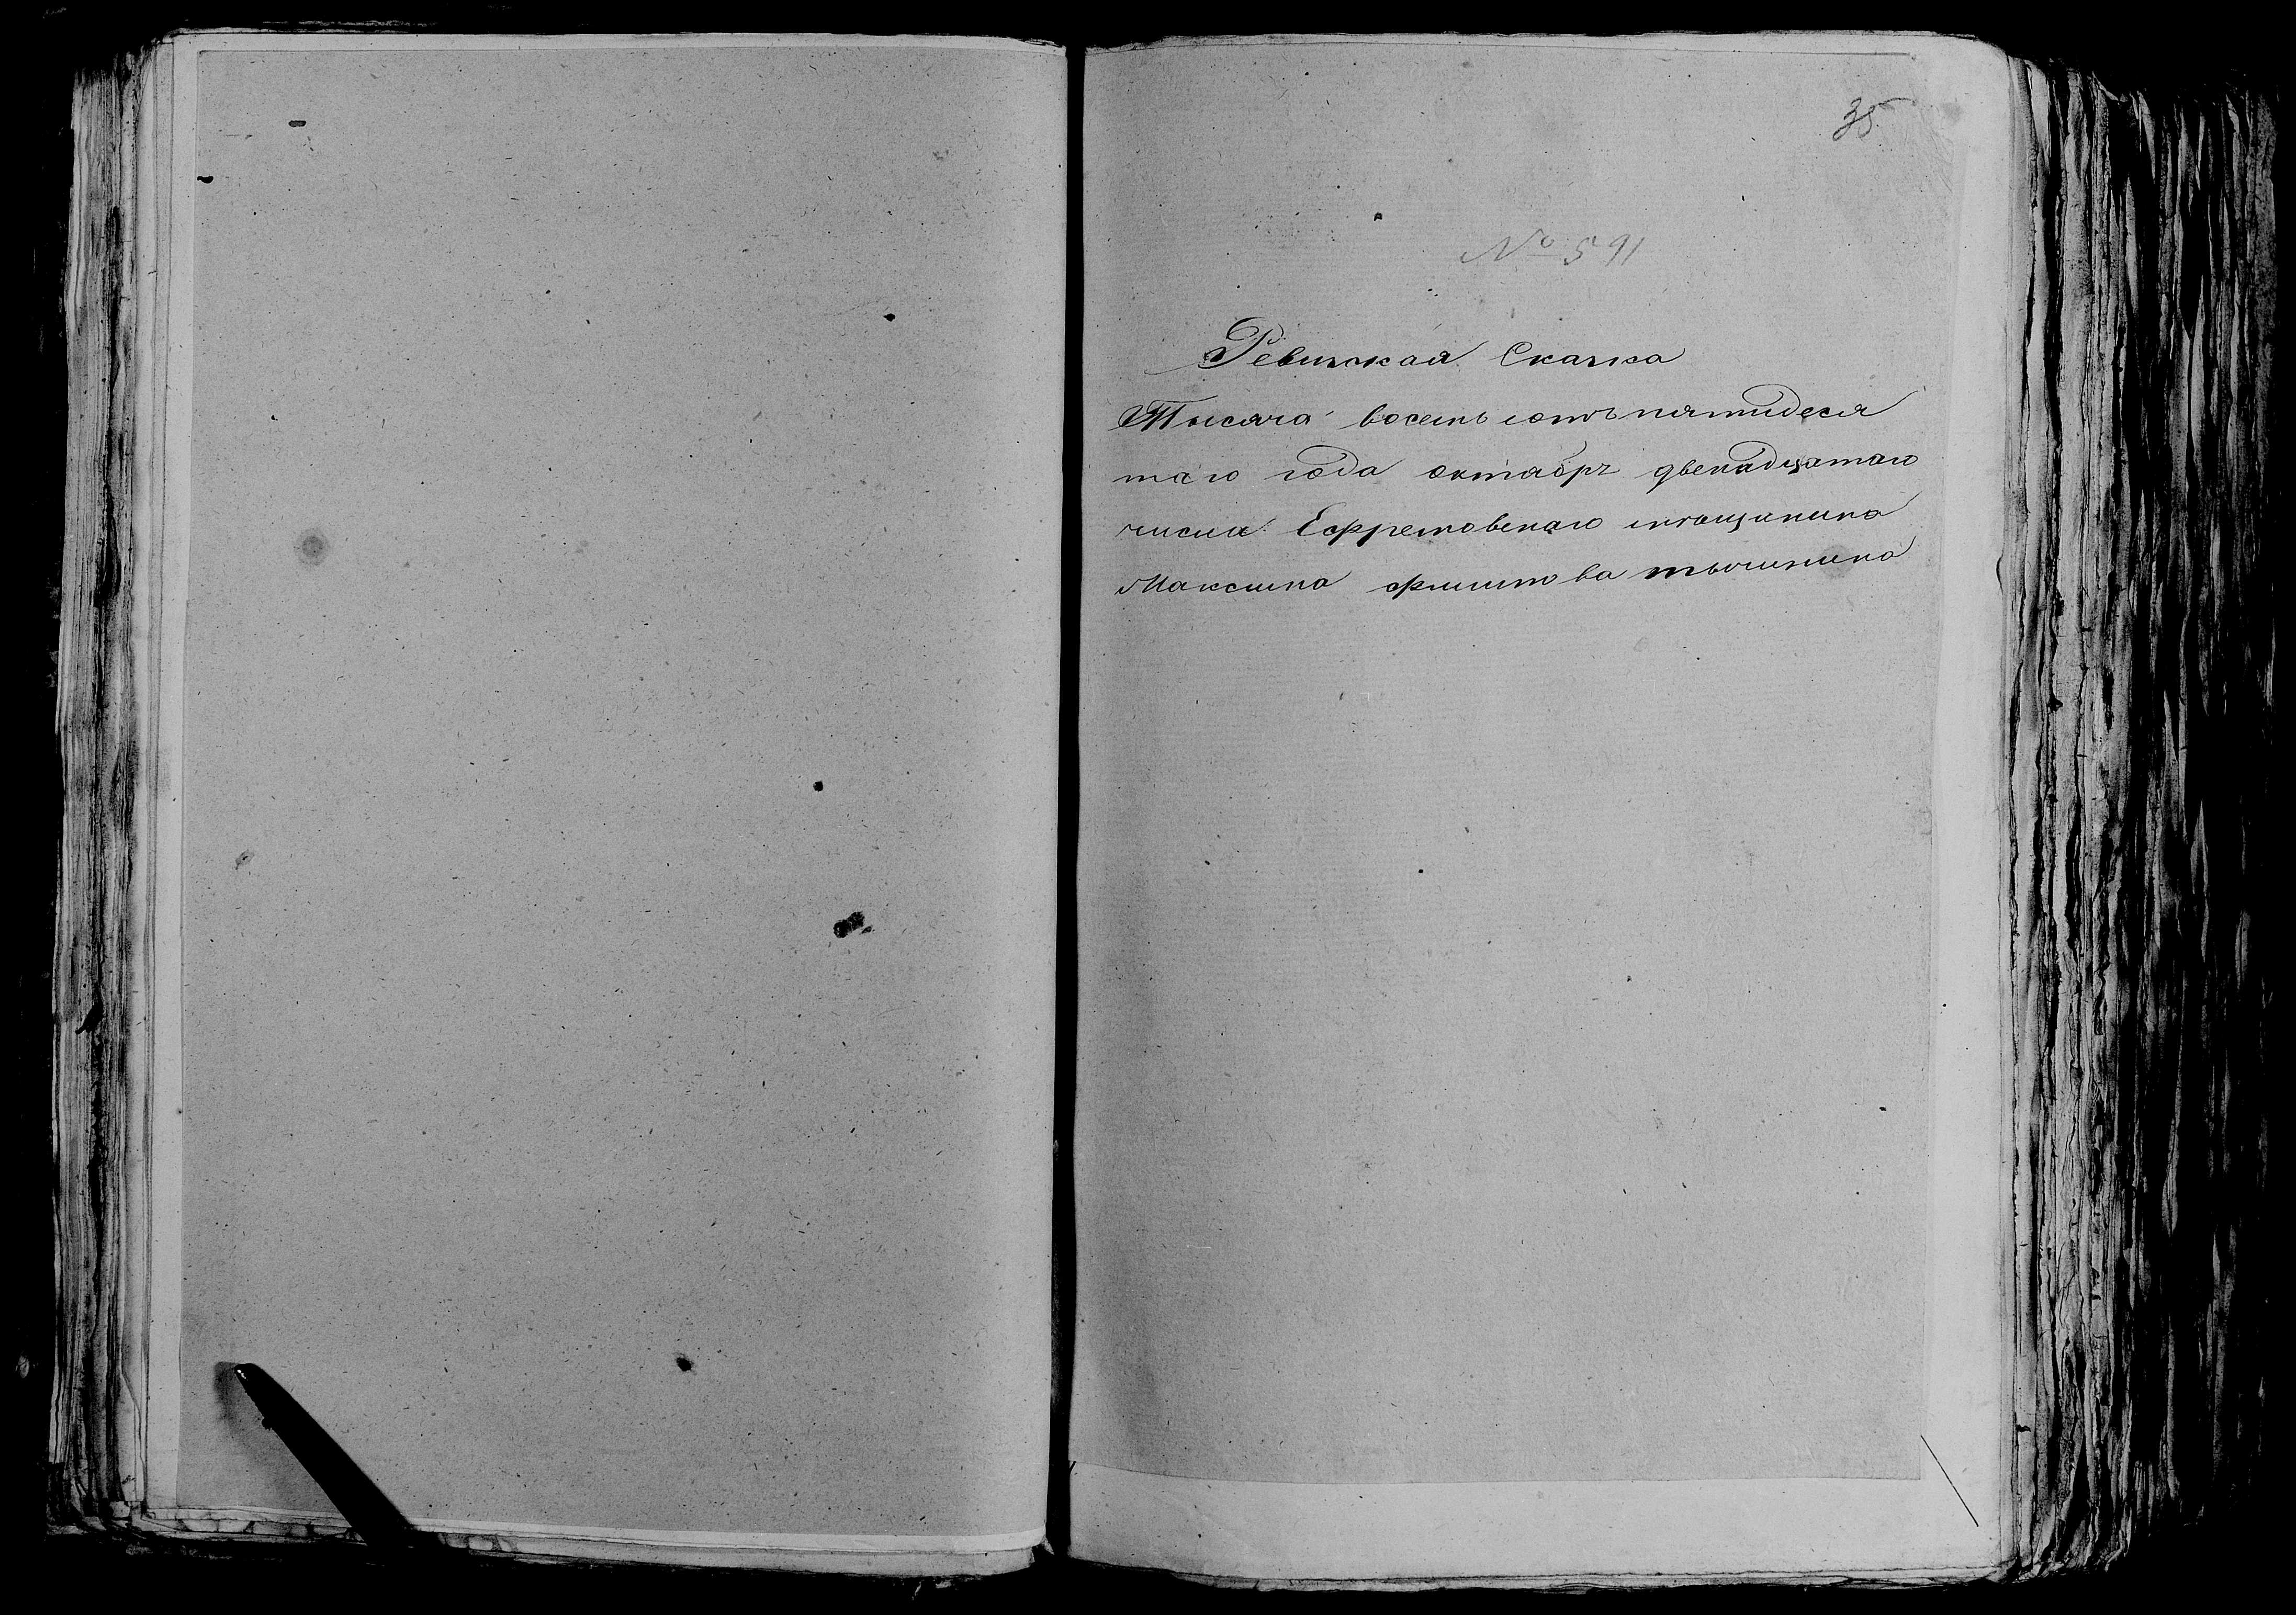 35
№ 591
Ревизская Сказка
Тысяча восемь сотъ пятидеся
таго года октября двенадцатаго
числа Ефремовскаго мещанина
Максима Филипова